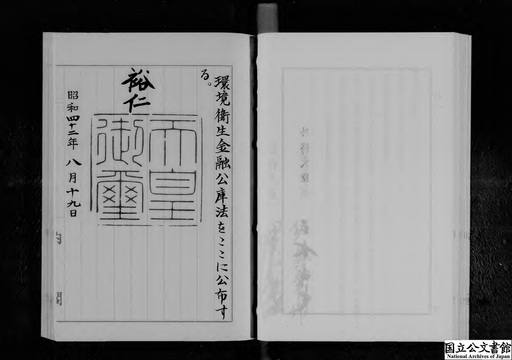 環境衛生金融公庫法をここに公布す
る。
裕仁
天皇
御璽
昭和四十二年八月十九日
国立公文書館
National Archives of Japan